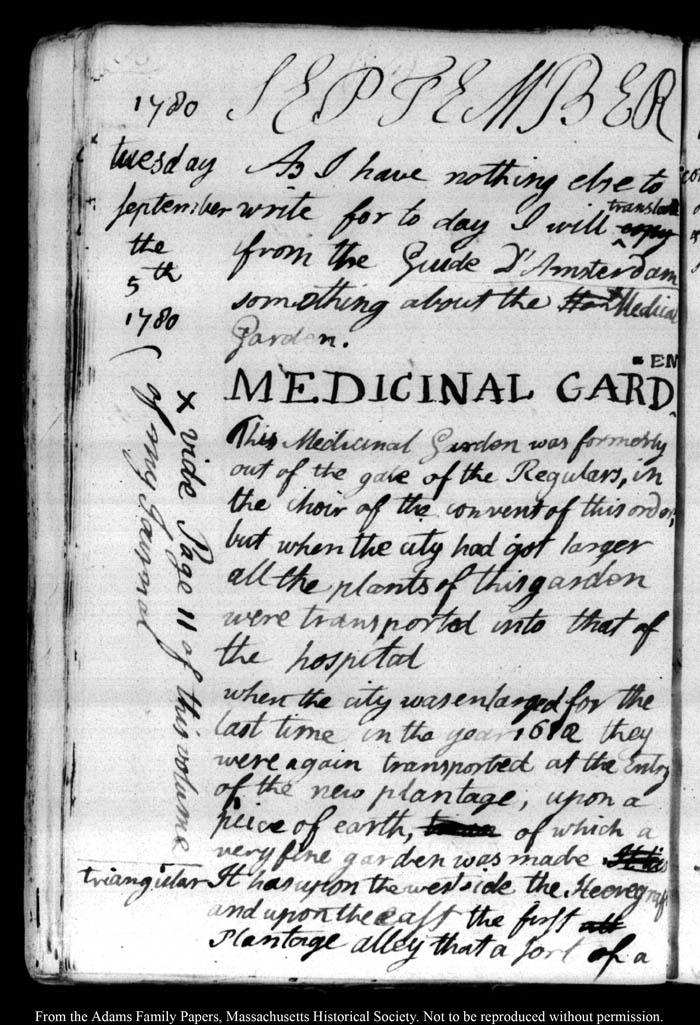 1780 SEPTEMBER
tuesday As I have nothing else to
september write for to day I will translate copy
the from the Guide D'Amsterdam
5th something about the Medical
1780 Garden.
MEDICINAL GARD=EN
This Medicinal Garden was formerly
out of the gate of the Regulars, in
the choir of the convent of this order,
but when the city had got larger
all the plants of this garden
were transported into that of
the hospital
when the city was enlarged for the
last time in the year they
were again transported at the Entry
of the new plantage, upon a
peice of earth, of which a
very fine garden was made
triangular It has upon the west side the Heeregraft
and upon the east the first
Plantage alley that a sort of a
X vide Page 11 of this volume
of my Journal
From the Adams Family Papers, Massachusetts Historical Society. Not to be reproduced without permission.